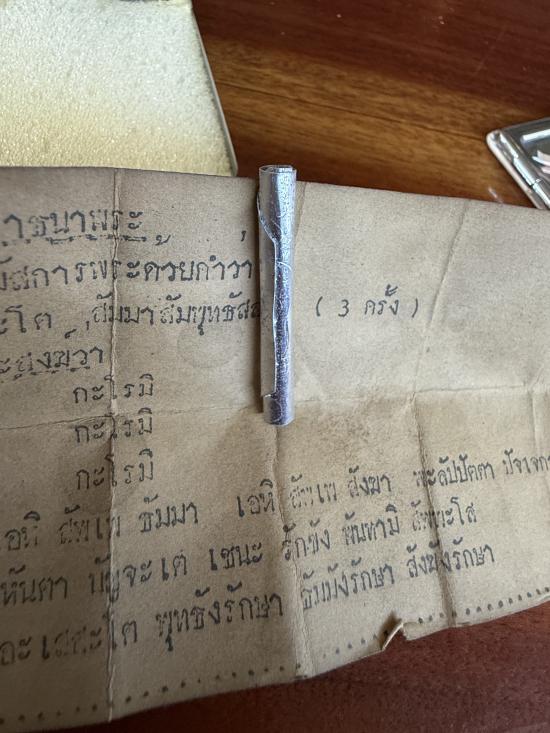 าธนาพระ
มัสการพระด้วยคำว่า
ะโต สัมมาสัมพุทธัสส ( 3 ครั้ง )
ะสงฆ์ว่า
กะโรมิ
กะโรมิ
กะโรมิ
เอหิ สัพเพ ธัมมา เอหิ สัพเพ สังฆา พะลัปปัตตา ปัจเจกา
หันตา นัญจะเต เชนะ รักขัง พันทามิ สัพพะโส
พุทธังรักษา ธัมมังรักษา สังฆังรักษา